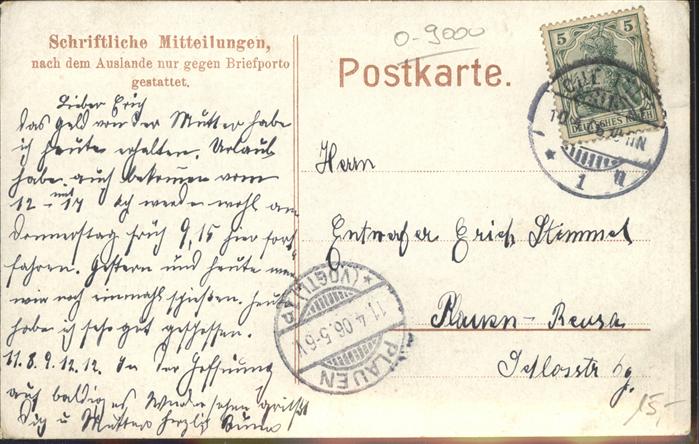 Schriftliche Mitteilungen,
nach dem Auslande nur gegen Briefporto
gestattet.
Postkarte.
0-9000
5 5
DEUTSCHES REICH
1 n
Lieber Erich
Das Geld von der Mutter habe
ich heute erhalten. Urlaub
habe auch bekommen vom
12 - mit 17 Ich werde wohl am
Donnerstag früh 9,15 hier fort
fahren. Gestern und heute
wir noch einmahl schießen. heute
habe ich sehr gut geschossen.
11.8.9.12.12. In der Hoffnung
auf baldiges Wiedersehen grüßt
Dich u Mutter herzlich
Herrn
Entwerfer Erich Stimmel
Plauen-Reusa
Schlosstr 6g.
PLAUEN
(VOGTL)
11.4.06.5-6V.
15,-